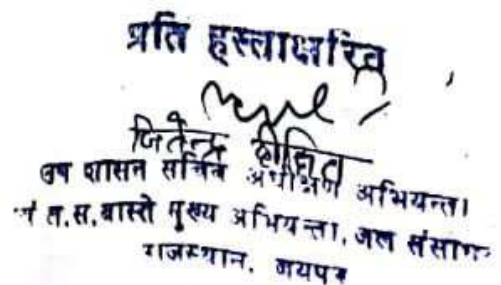 प्रति हस्ताक्षरित
जितेन्द्र दीक्षित
उप शासन सचिव अधीक्षण अभियन्ता
वास्ते मुख्य अभियन्ता, जल संसाधन
राजस्थान, जयपुर